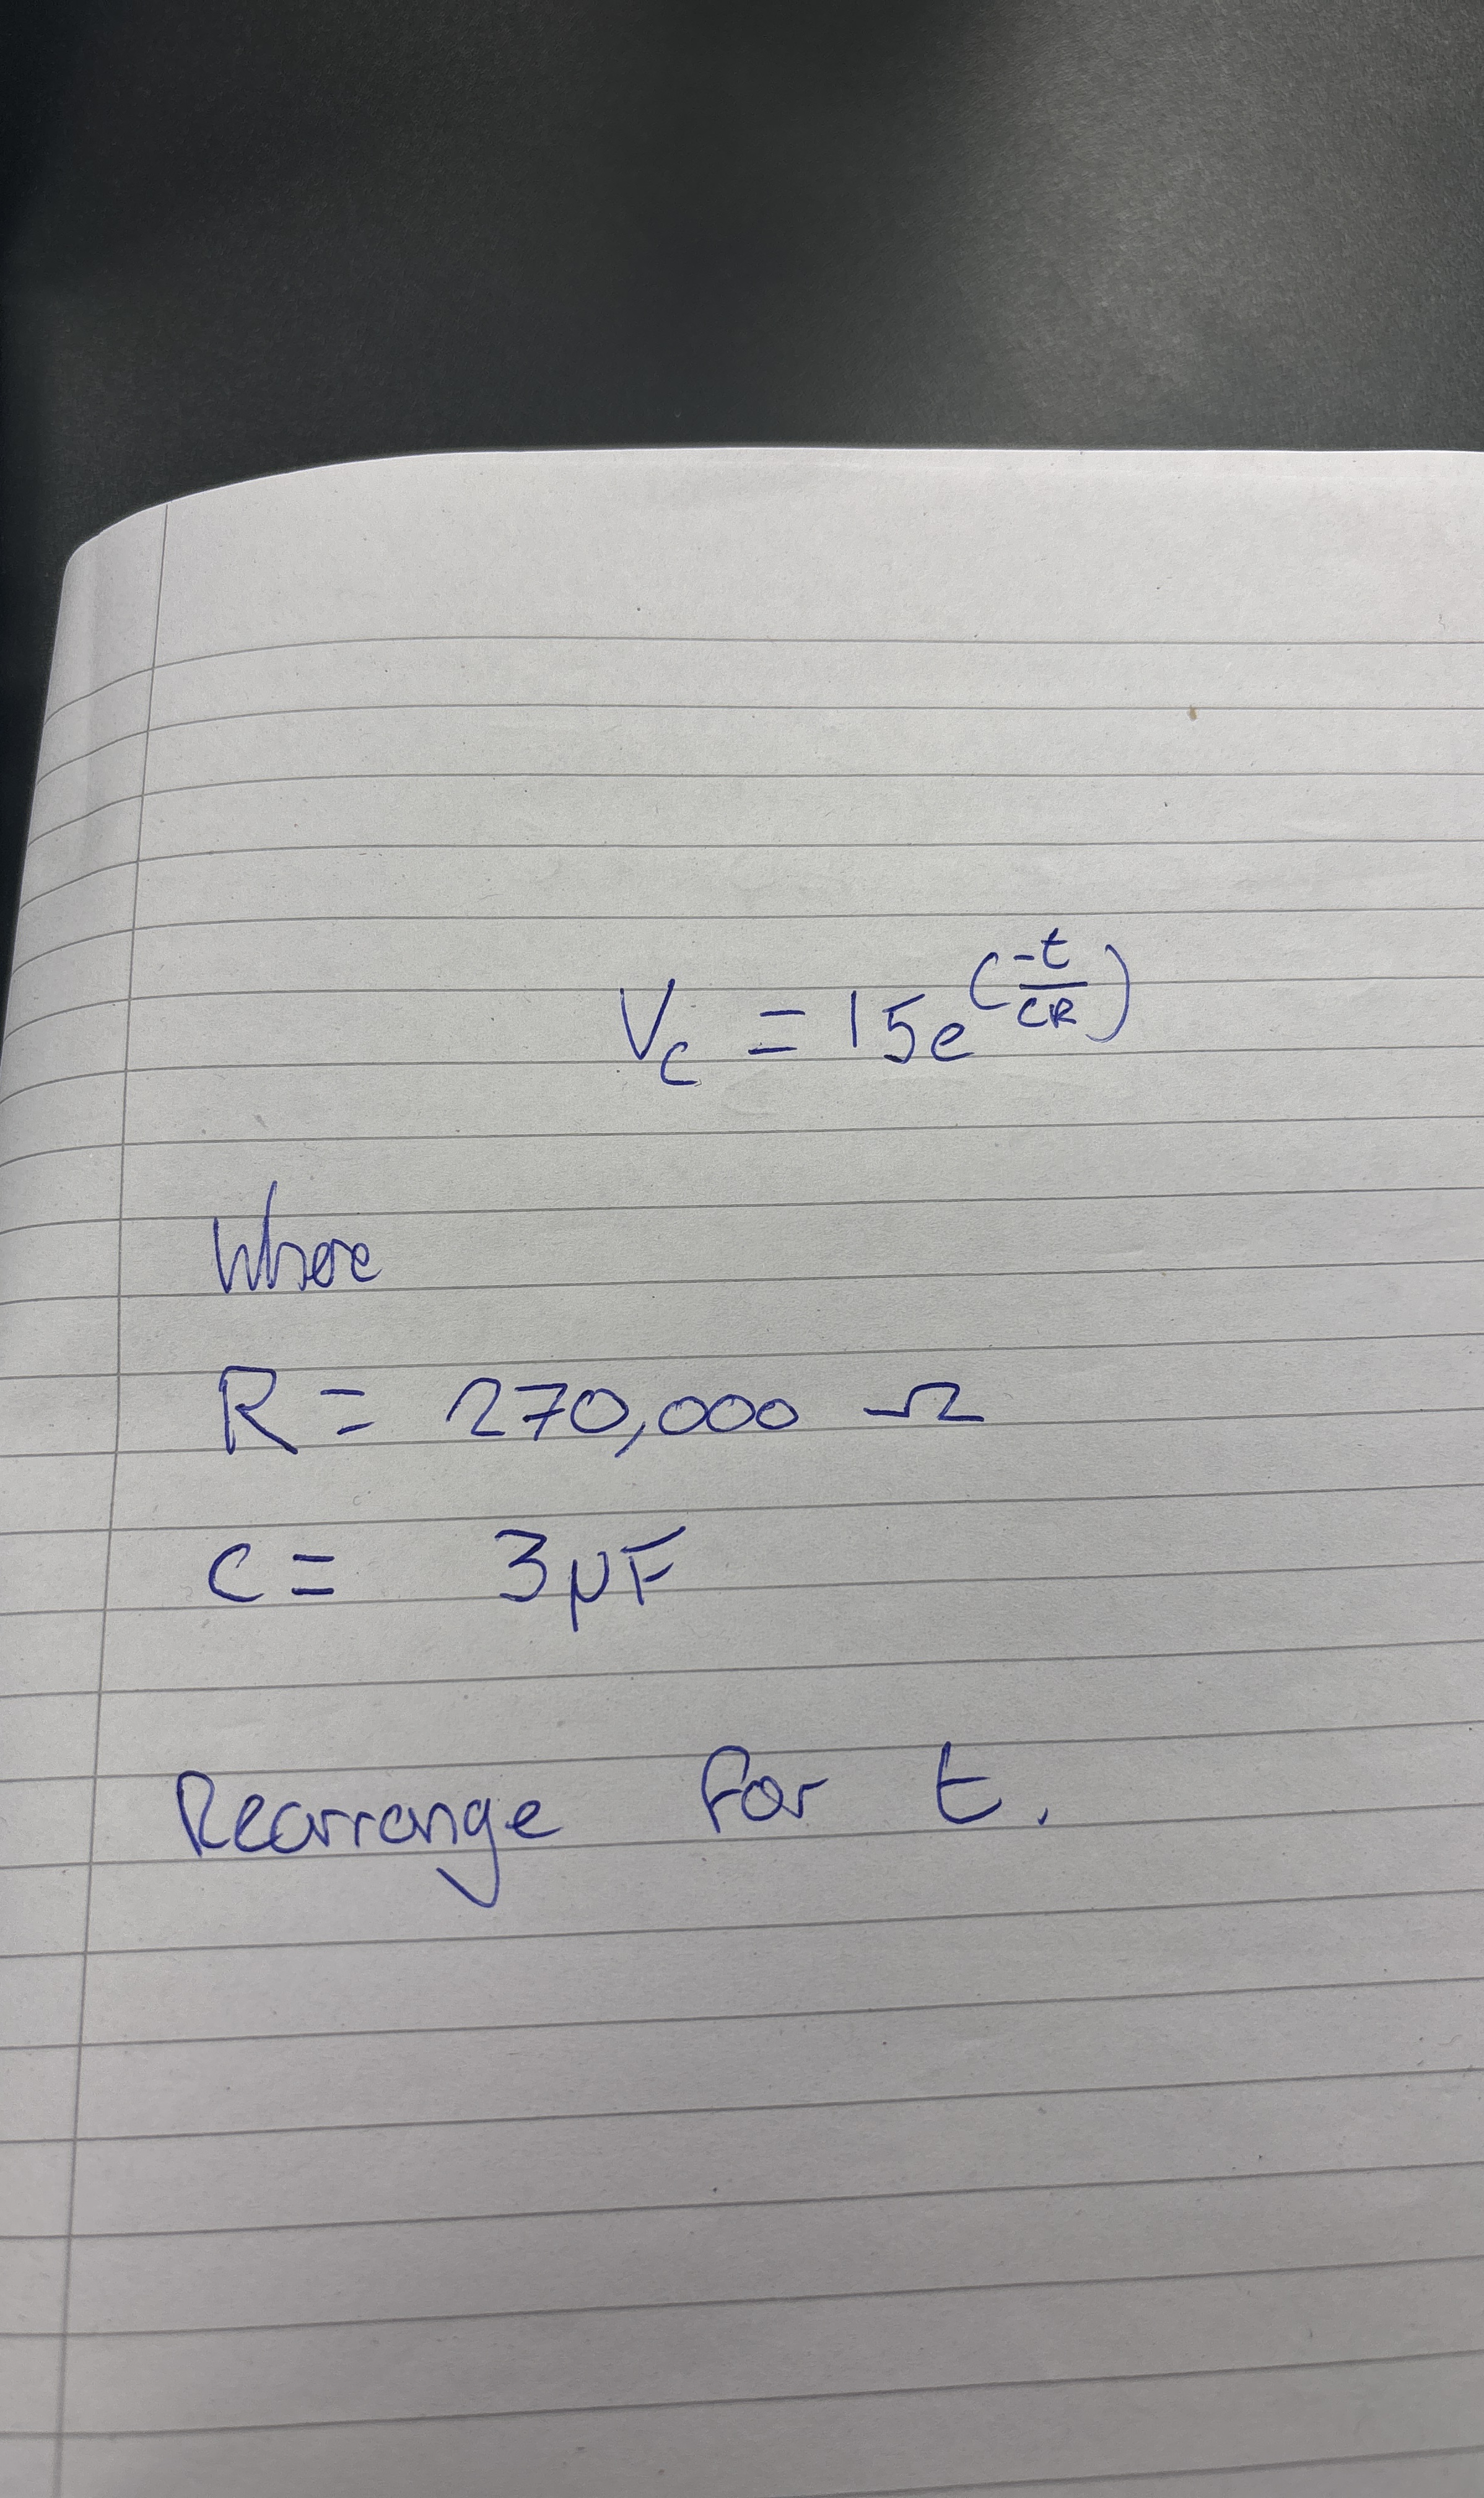 Vc = 15e^(-t/CR)
Where
R = 270,000 Ω
C = 3μF
Rearrange for t.